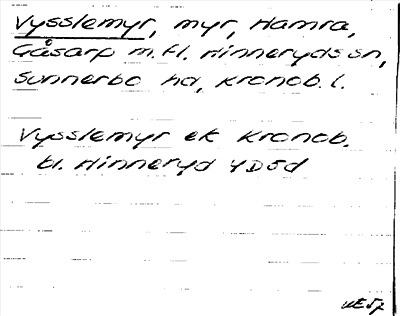 Vysslemyr, myr, Hamra,
Gåsarp m.fl. Hinneryds sn,
Sunnerbo hd, Kronob. l.
Vysslemyr ek Kronob.
bl. Hinneryd 4D5d